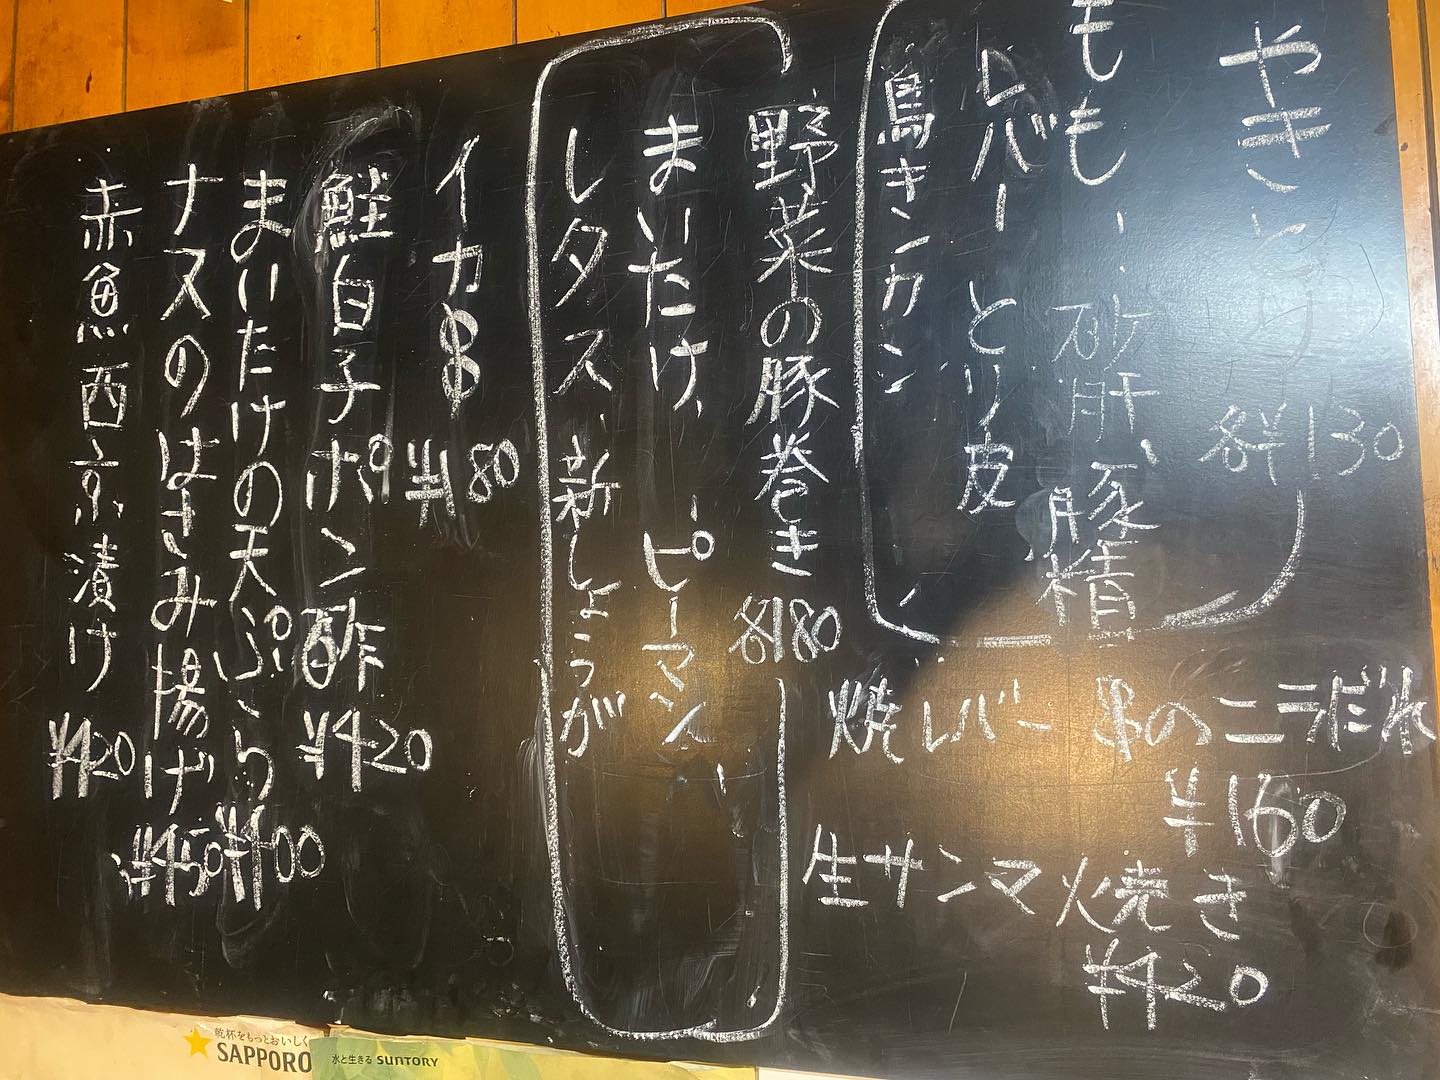 やきとり 各¥130
もも、砂肝、豚精
レバー、とり皮
鳥きンカン
焼レバー串のニラだれ
¥160
生サンマ焼き
¥420
野菜の豚巻き 各180
まいたけ、ピーマン、
レタス、新しょうが
イカ串 ¥180
鮭白子ポン酢 ¥420
まいたけの天ぷら ¥400
ナスのはさみ揚げ ¥450
赤魚西京漬け ¥420
乾杯をもっとおいしく
SAPPORO
水と生きる SUNTORY